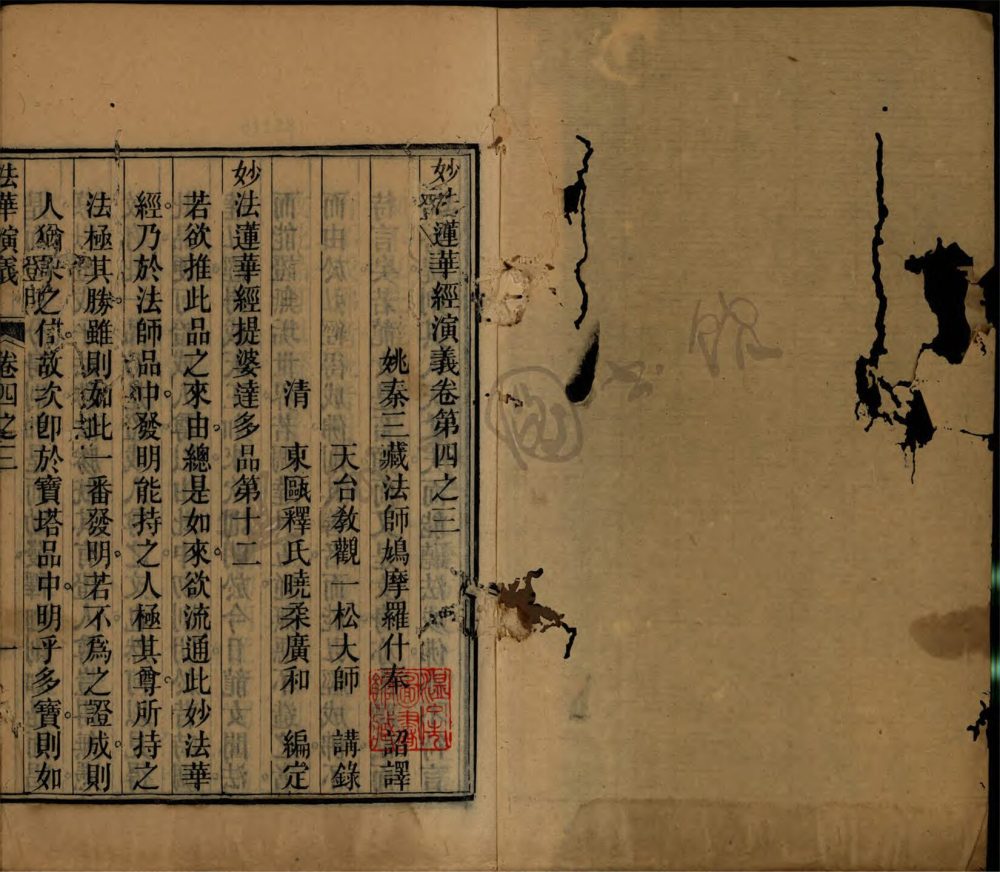 妙法蓮華經演義卷第四之三
姚秦三藏法師鳩摩羅什奉 詔譯
天台教觀一松大師 講錄
清 東甌釋氏曉柔廣和 編定
妙法蓮華經提婆達多品第十二
若欲推此品之來由。總是如來。欲流通此妙法華
經。乃於法師品中。發明能持之人極其尊。所持之
法極其勝。雖則如此一番發明。若不爲之證成。則
人猶之信。故次卽於寶塔品中。明乎多寶。則如
法華演義 卷四之三 一